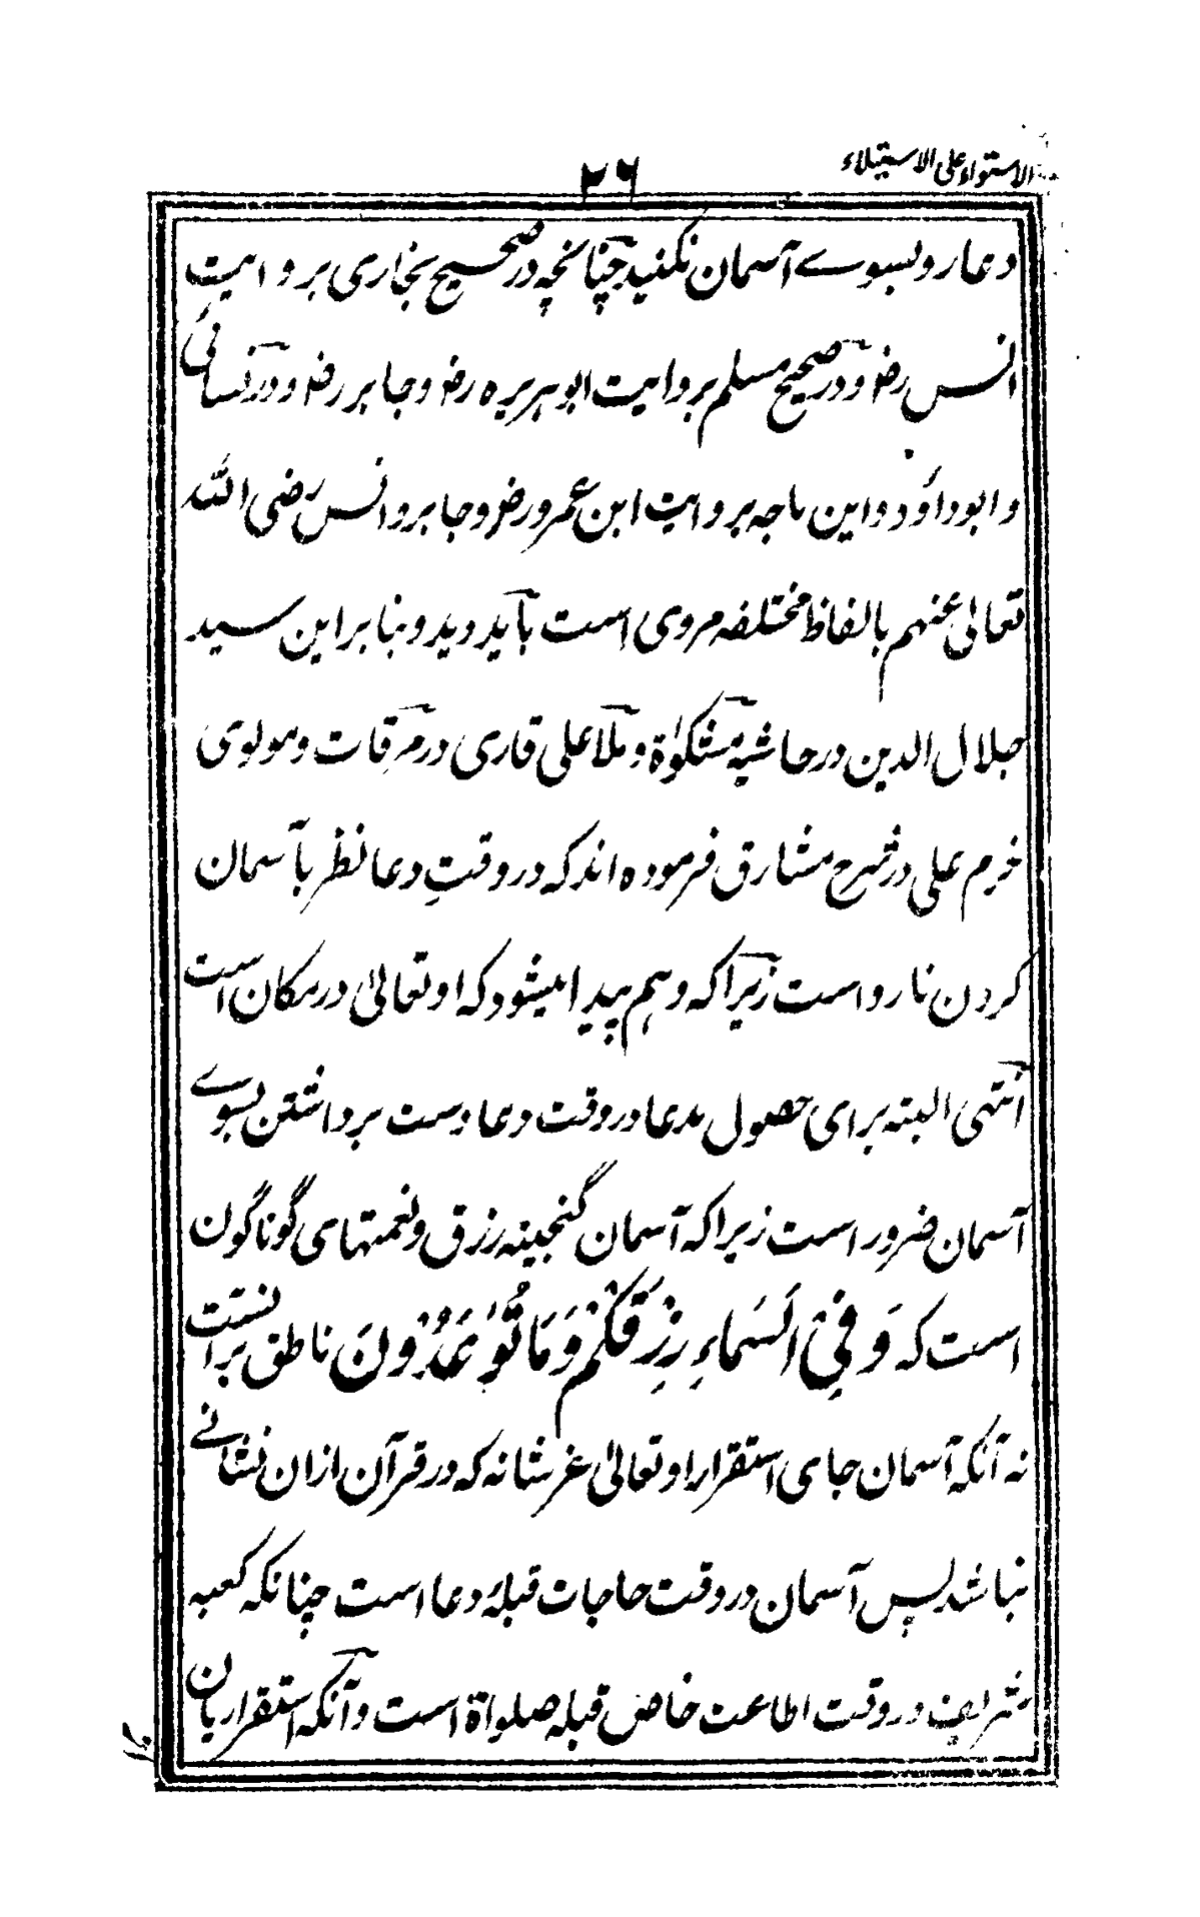 الاستواء علی الاستیلاء
۲۶
دعا رو بسوے آسمان نکنید چنانچہ در صحیح بخاری بروایت
انس رضہ و در صحیح مسلم بروایت ابو ہریرہ رضہ و جابر رضہ و در نسائی
و ابوداؤد و ابن ماجہ بروایت ابن عمرو رضہ و جابر و انس رضی اللہ
تعالیٰ عنہم بالفاظ مختلفہ مروی است باید دید و بنا بر این سید
جلال الدین در حاشیہ مشکوٰۃ و ملا علی قاری در مرقات و مولوی
خرم علی در شرح مشارق فرمودہ اند کہ در وقتِ دعا نظر بآسمان
کردن ناروا است زیرا کہ وہم پیدا میشود کہ او تعالیٰ در مکان است
انتہی البتہ برای حصول مدعا در وقت دعا دست برداشتن بسوے
آسمان ضرور است زیرا کہ آسمان گنجینہ رزق و نعمتہای گوناگون
است کہ وَفِی السَّمَاءِ رِزْقُکُمْ وَمَا تُوْعَدُوْنَ ناطق بر آنست
نہ آنکہ آسمان جای استقرار او تعالیٰ عز شانہ کہ در قرآن ازان نشانے
نباشد پس آسمان در وقت حاجات قبلۂ دعا است چنانکہ کعبہ
شریف در وقت اطاعت خاص قبلہ صلواۃ است و آنکہ استقرار بآن